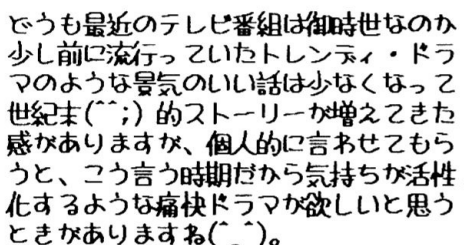 どうも最近のテレビ番組は御時世なのか
少し前に流行っていたトレンディ・ドラ
マのような景気のいい話は少なくなって
世紀末(^^;)的ストーリーが増えてきた
感がありますが、個人的に言わせてもら
うと、こう言う時期だから気持ちが活性
化するような痛快ドラマが欲しいと思う
ときがありますね(^_^)。